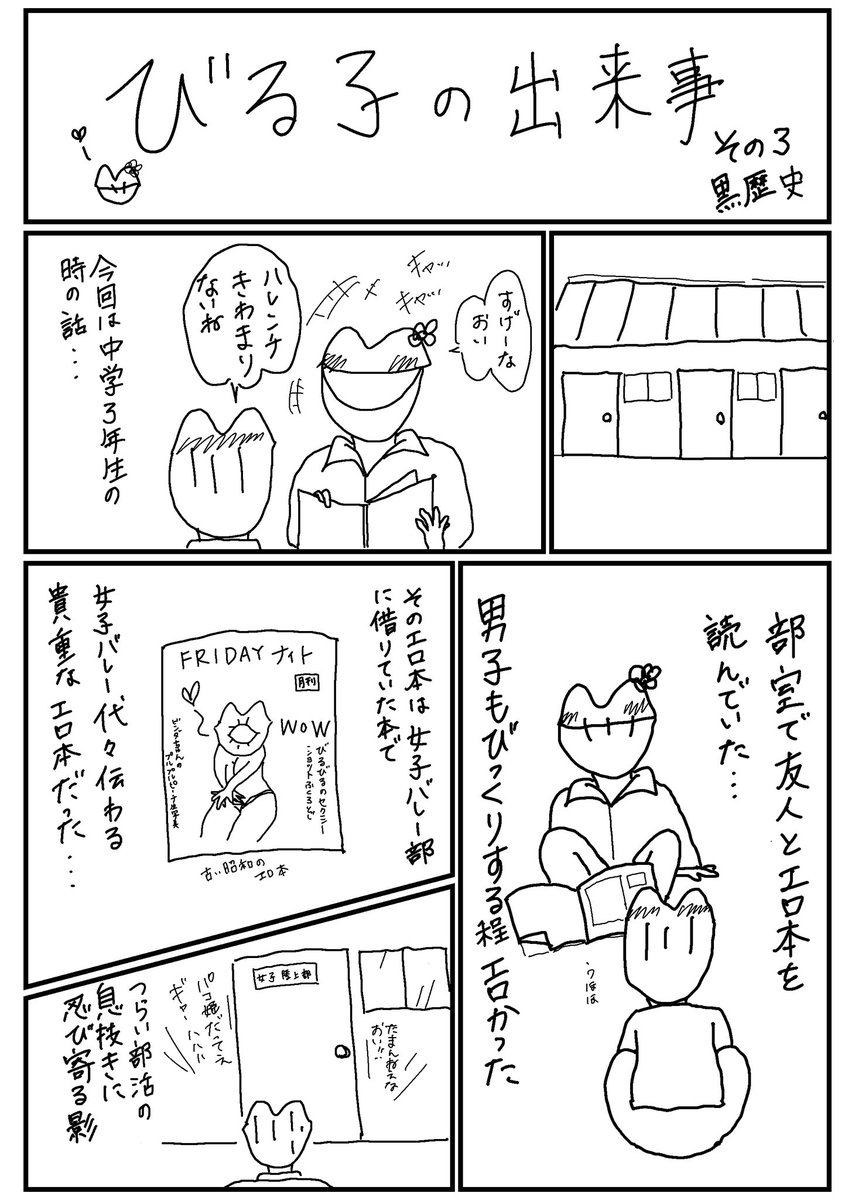 びる子の出来事
その3
黒歴史
すげーな
おい
キャッ…
キャッ…
ハレンチ
きわまり
ないね
今回は中学3年生の
時の話…
部室で友人とエロ本を
読んでいた…
男子もびっくりする程エロかった
うほほ
そのエロ本は女子バレー部
に借りていた本で
FRIDAYナイト
月刊
WOW
びるびるのセクシー
ショットふくろとじ
古い昭和の
エロ本
女子バレー代々伝わる
貴重なエロ本だった…
女子陸上部
たまんねえな
おい!!
パコ姫だってえ
ギャーハハハ
つらい部活の
息抜きに
忍び寄る影